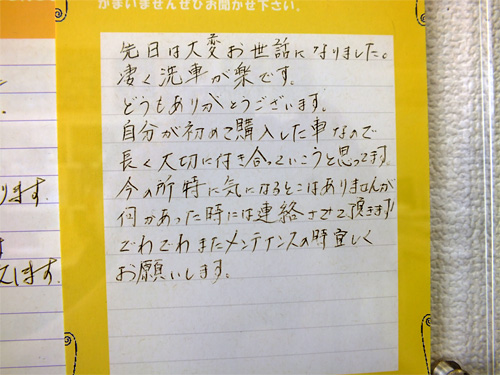 かまいませんぜひお聞かせ下さい。
先日は大変お世話になりました。
凄く洗車が楽です。
どうもありがとうございます。
自分が初めて購入した車なので
長く大切に付き合っていこうと思ってます。
今の所特に気になるとこはありませんが
何かあった時には連絡させて頂きます!
でわでわまたメンテナンスの時宜しく
お願いします。
ります。
します。